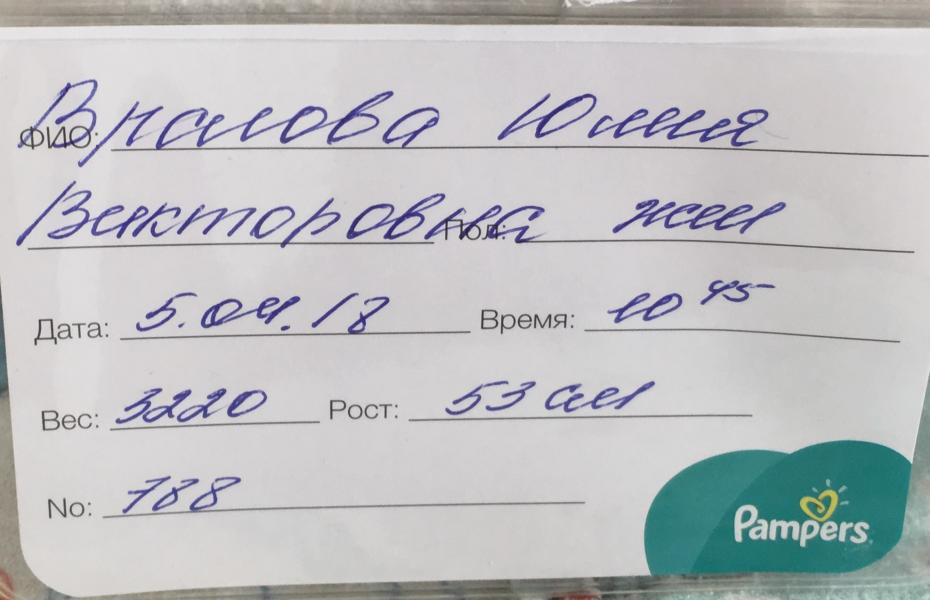 ФИО: Вналова Юлия
Викторовна Пол: жен
Дата: 5.04.18 Время: 10 45
Вес: 3220 Рост: 53 см
No: 788
Pampers